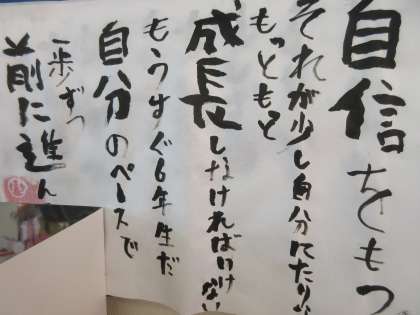 自信をもつ
それが少し自分にたりない
もっともっと
成長しなければいけない
もうすぐ6年生だ
自分のペースで
一歩ずつ
前に進ん